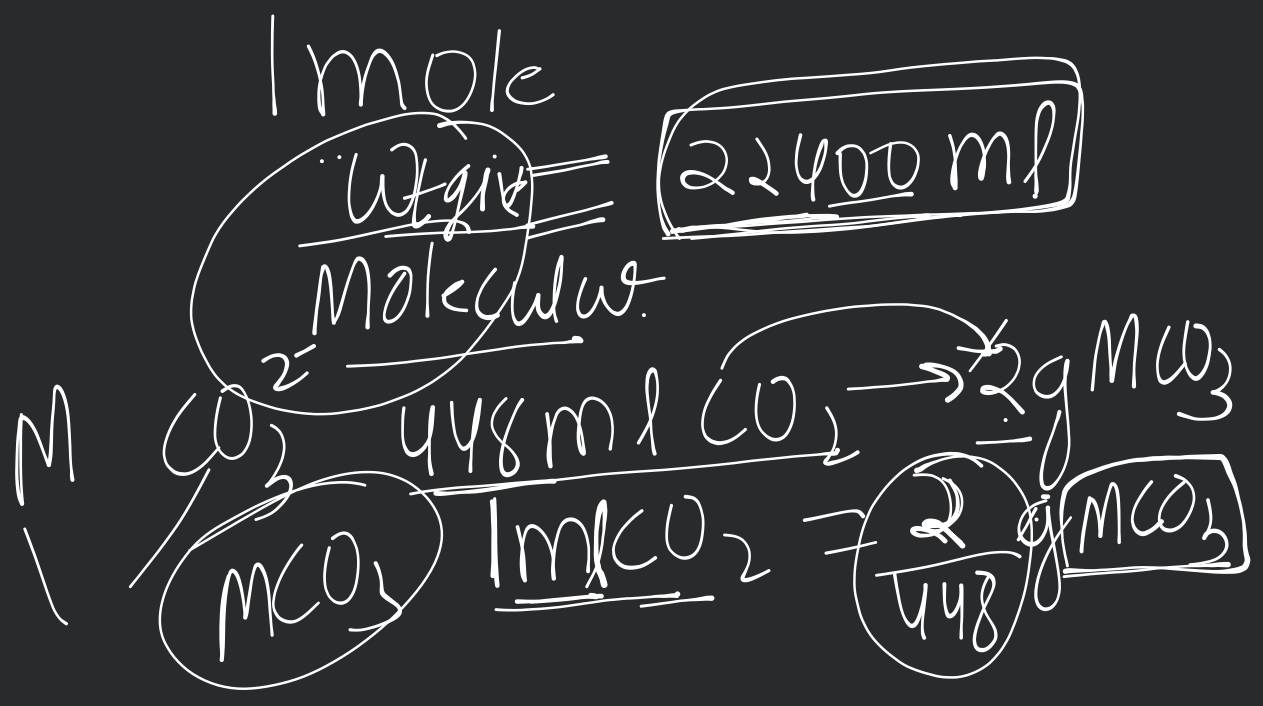 1 mole
Wt giv = 22400 ml
Molecular.
448 ml CO2 → 2g MCO3
M CO3 2-
1 ml CO2 = 2/448 g MCO3
MCO3